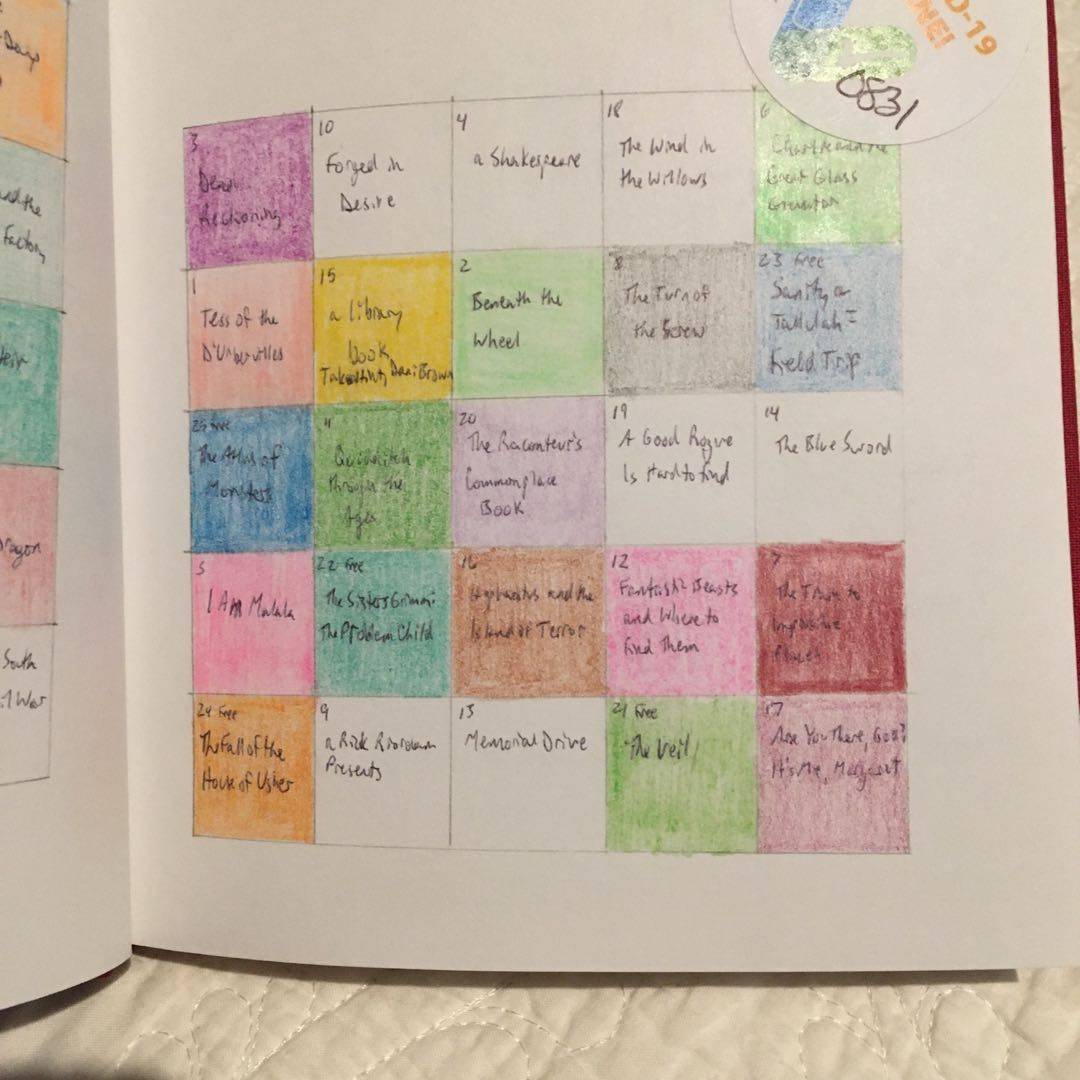 Days
and the
Factory
Dragon
South
D-19
0831
3
Dead
Reckoning
10
Forged in
Desire
4
a Shakespeare
18
The Wind in
the Willows
6
Charlie and the
Great Glass
Elevator
1
Tess of the
D'Urbervilles
15
a library
book
Takedown, Dani Brown
2
Beneath the
Wheel
8
The Turn of
the Screw
23 Free
Sanity &
Tallulah:
Field Trip
25 Free
The Atlas of
Monsters
11
Quidditch
through the
Ages
20
The Raconteur's
Commonplace
Book
19
A Good Rogue
Is Hard to find
14
The Blue Sword
5
I Am Malala
22 Free
The Sisters Grimm:
The Problem Child
16
Hephaestus and the
Island of Terror
12
Fantastic Beasts
and Where to
find Them
7
The
to
Impossible
Places
24 Free
The Fall of the
House of Usher
9
a Rick Riordan
Presents
13
Memorial Drive
21 Free
The Veil
17
Are You There, God?
It's Me, Margaret